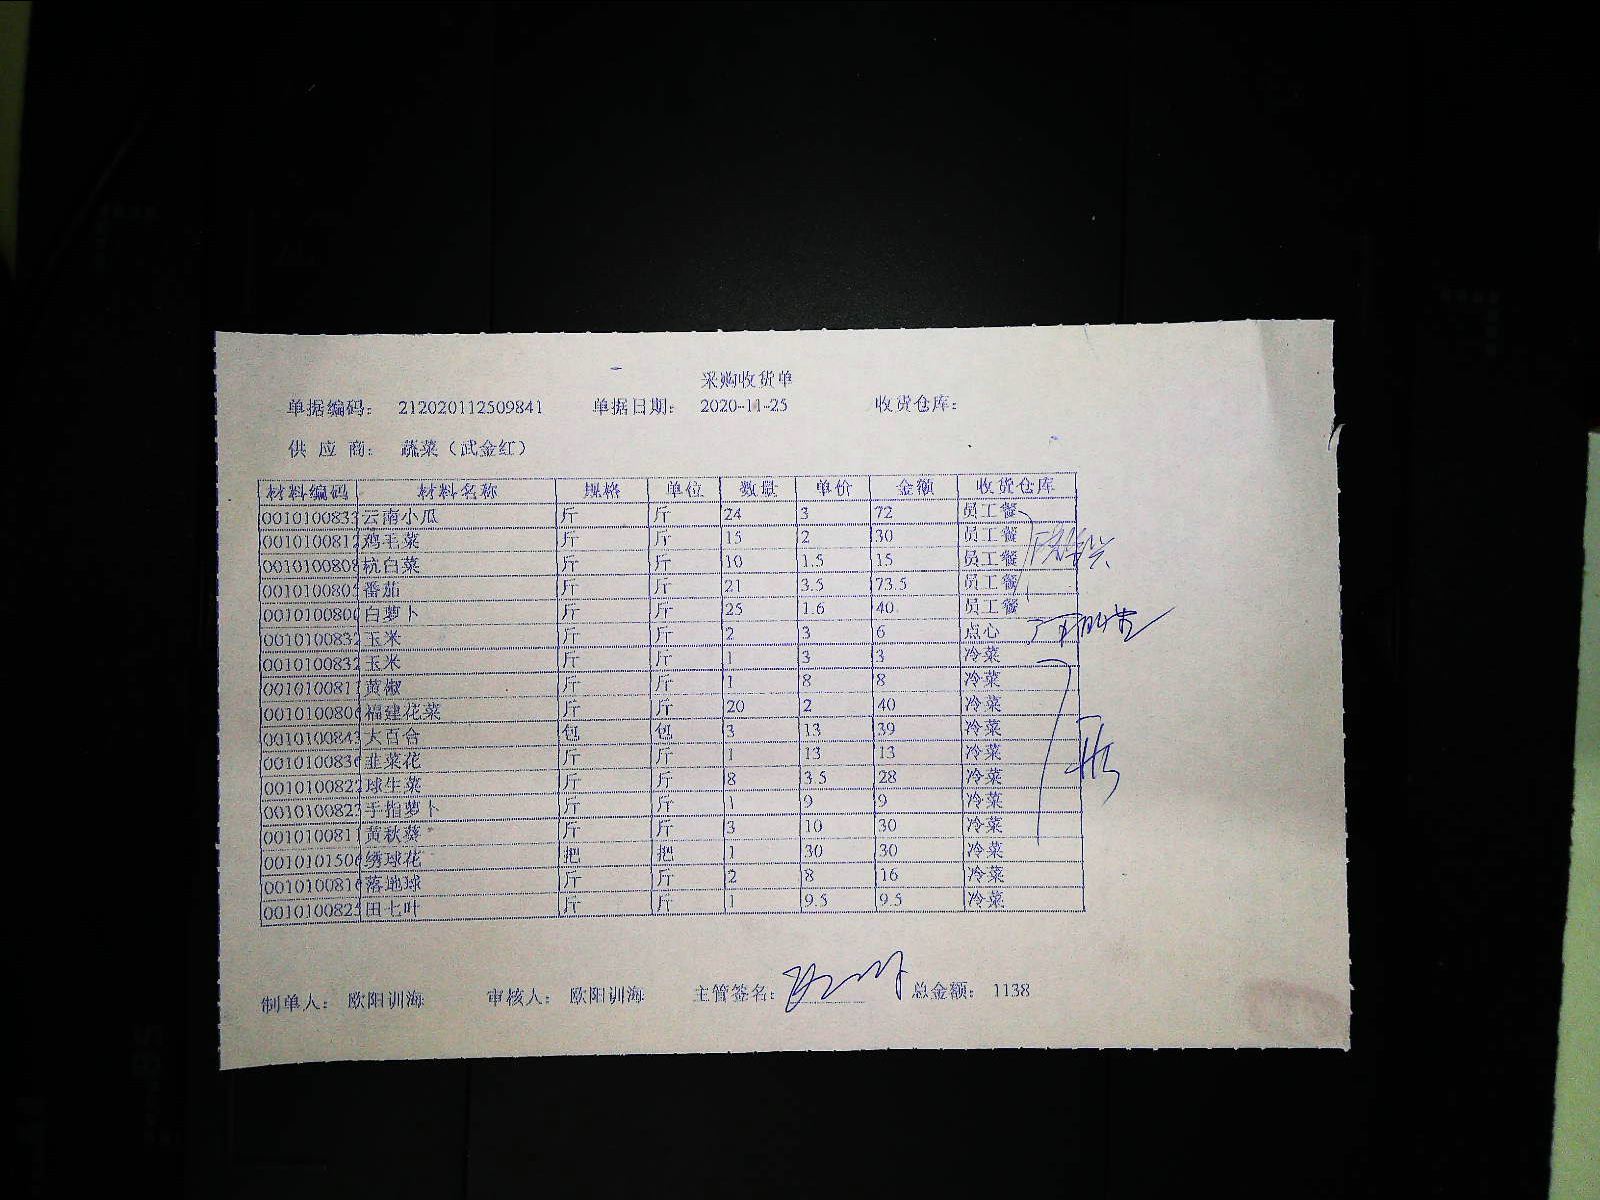 采购收货单
单据编码： 212020112509841 单据日期： 2020-11-25 收货仓库：
供 应 商： 蔬菜（武金红）
材料编码 材料名称 规格 单位 数量 单价 金额 收货仓库
0010100833 云南小瓜 斤 斤 24 3 72 员工餐
0010100812 鸡毛菜 斤 斤 15 2 30 员工餐
0010100808 杭白菜 斤 斤 10 1.5 15 员工餐
0010100805 番茄 斤 斤 21 3.5 73.5 员工餐
0010100800 白萝卜 斤 斤 25 1.6 40 员工餐
0010100832 玉米 斤 斤 2 3 6 点心
0010100832 玉米 斤 斤 1 3 3 冷菜
0010100811 黄椒 斤 斤 1 8 8 冷菜
0010100806 福建花菜 斤 斤 20 2 40 冷菜
0010100843 大百合 包 包 3 13 39 冷菜
0010100836 韭菜花 斤 斤 1 13 13 冷菜
0010100822 球生菜 斤 斤 8 3.5 28 冷菜
0010100823 手指萝卜 斤 斤 1 9 9 冷菜
0010100811 黄秋葵 斤 斤 3 10 30 冷菜
0010101506 绣球花 把 把 1 30 30 冷菜
0010100816 落地球 斤 斤 2 8 16 冷菜
0010100825 田七叶 斤 斤 1 9.5 9.5 冷菜
制单人： 欧阳训海 审核人： 欧阳训海 主管签名： 总金额： 1138